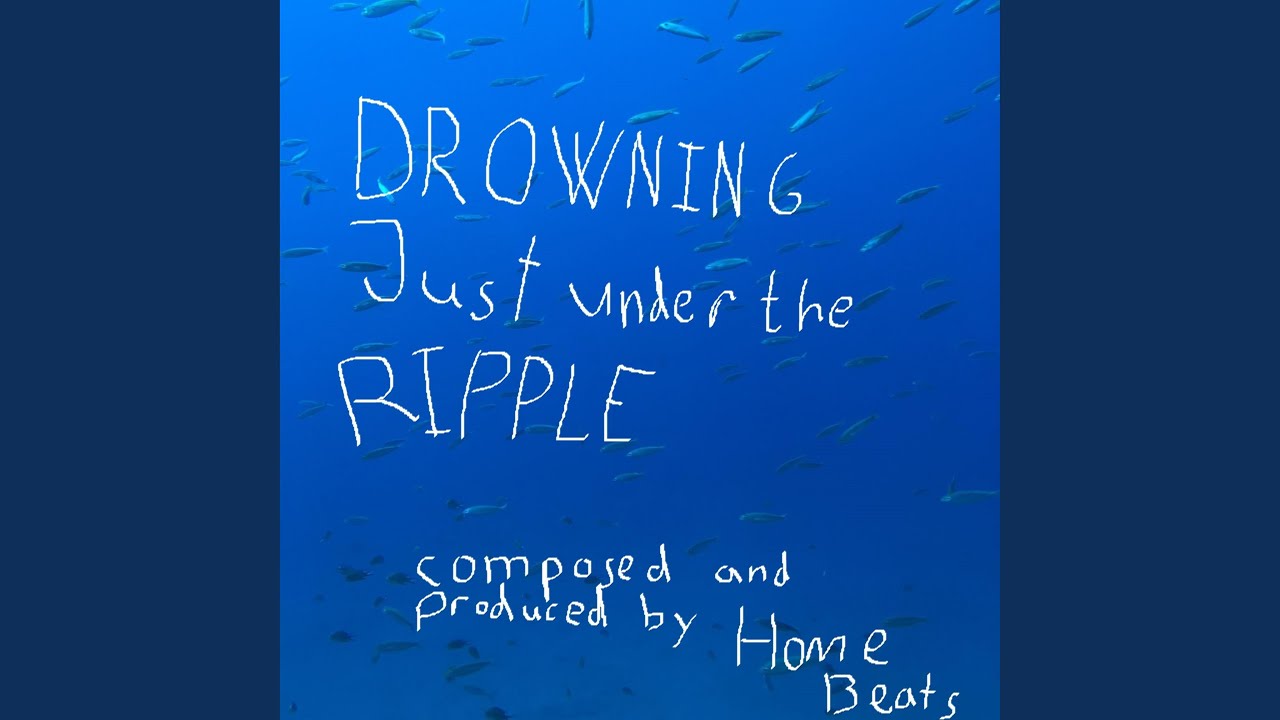 DROWNING
Just under the
RIPPLE
composed and
produced by Home
Beats